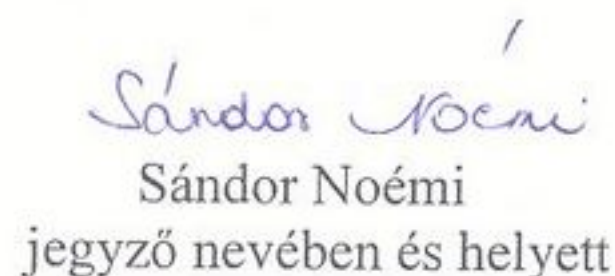 Sándor Noémi
Sándor Noémi
jegyző nevében és helyett